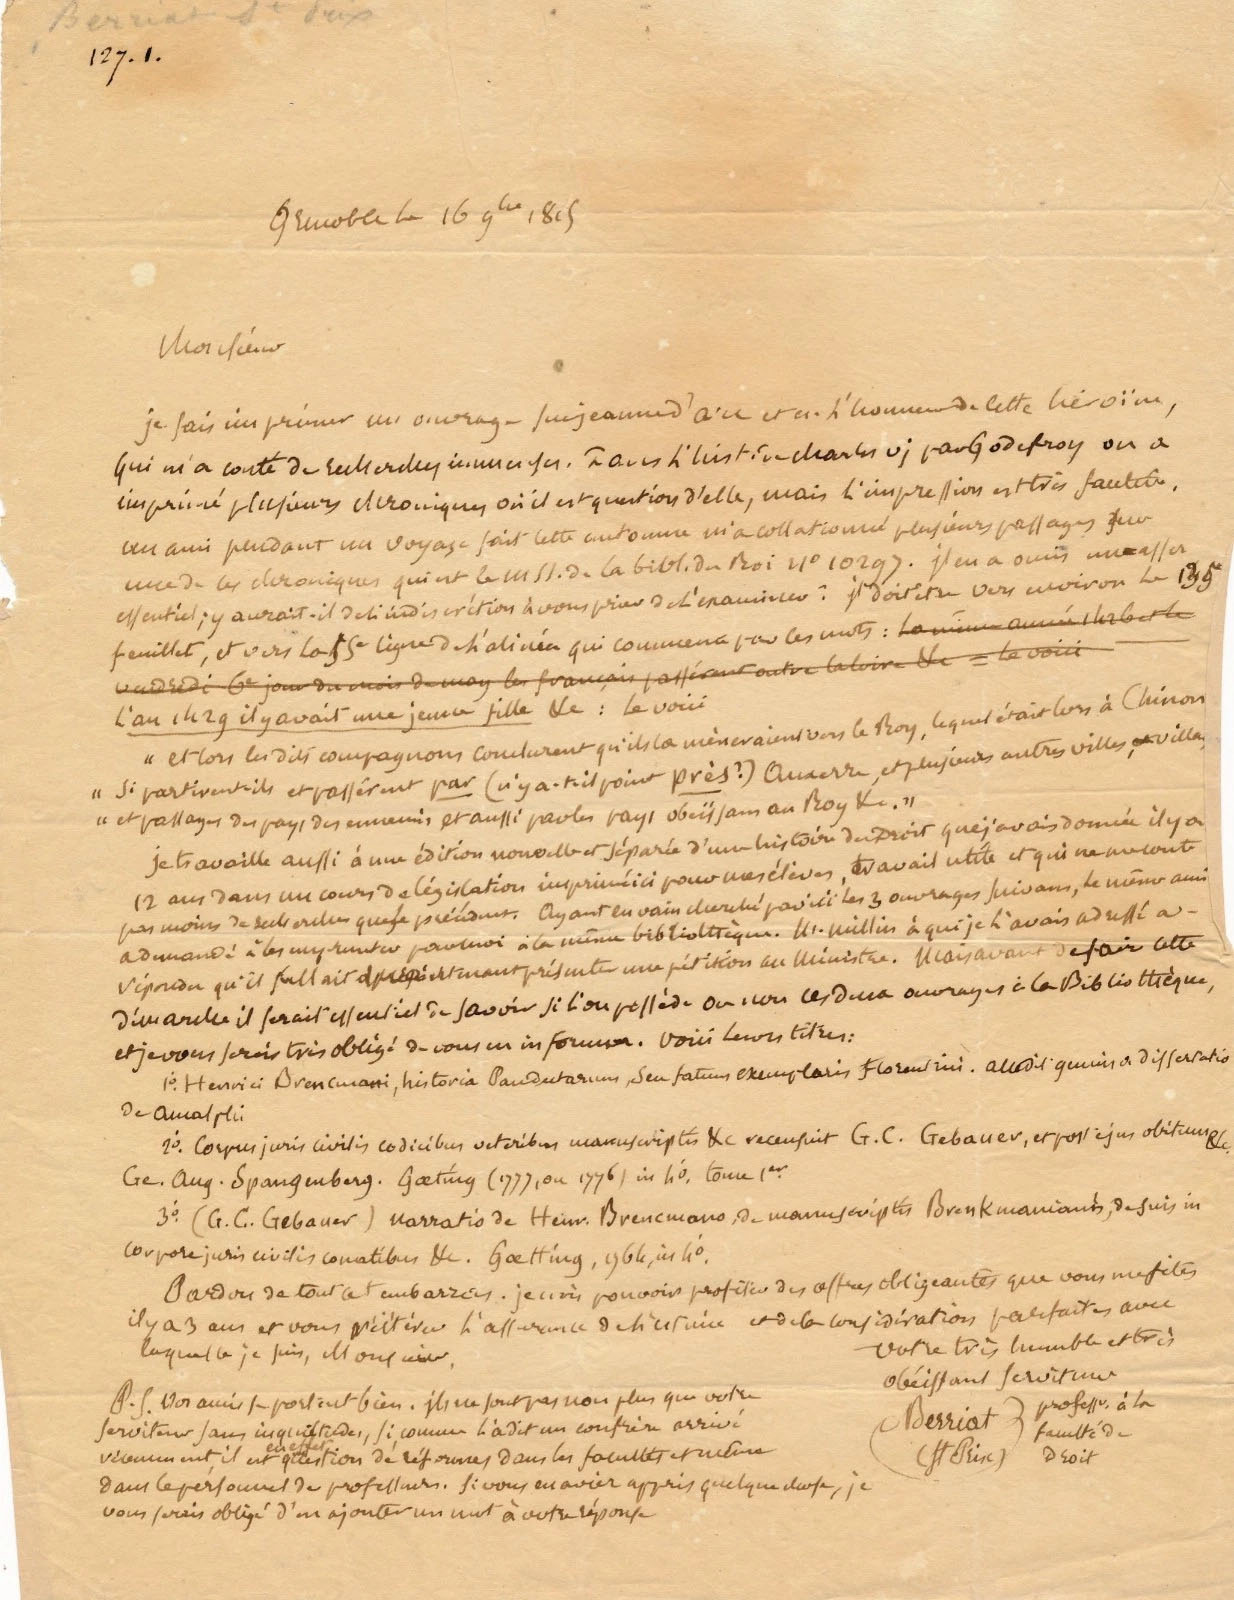 Berriat St Prix
127. 1.
Grenoble le 16 9bre 1815
Monsieur
je fais imprimer un ouvrage sur jeanne d'arc et en l'honneur de cette héroïne,
qui m'a coûté de recherches immenses. Dans l'hist. de charles vj par Godefroy on a
imprimé plusieurs chroniques où il est question d'elle, mais l'impression est très fautive.
un ami pendant un voyage fait cette automne m'a collationné plusieurs passages sur
une de ces chroniques qui est le mss. de la bibl. du Roi no 10297. il en a omis un assez
essentiel; y aurait-il de l'indiscrétion à vous prier de l'examiner? il doit être vers environ le
feuillet, et vers la 55e ligne de l'alinéa qui commence par les mots : la même année 1428 et le
vendredi 6e jour du mois de may les français passérent outre la loire &c = le voici
L'an 1429 il y avait une jeune fille &c : le voici
" et lors les dits compagnons conclurent qu'ils la mèneraient vers le Roy, lequel était lors à Chinon
" si partirent-ils et passérent par (n'y a-t-il point près?) Auxerre, et plusieurs autres villes, villages
" et passages des pays des ennemis et aussi par les pays obéissans au Roy &c. "
je travaille aussi à une édition nouvelle et séparée d'une histoire du Droit que j'avais donnée il y a
12 ans dans un cours de législation imprimé ici pour mes élèves, travail utile et qui ne me coute
pas moins de recherches que le précédent. Ayant en vain cherché par ici les 3 ouvrages suivans, le même ami
a demandé à les emprunter pour moi à la même bibliothèque. M. millin à qui je l'avais adressé a
répondu qu'il fallait présenter une pétition au Ministre. Mais avant de faire cette
démarche il serait essentiel de savoir si l'on possède ou non ces deux ouvrages à la Bibliothèque,
et je vous serais très obligé de vous en informer. Voici leurs titres:
1o. Henrici Brencmani, historia Pandectarum, seu fatum exemplaris florentini. accedit gemina dissertatio
de Amalphi
2o. Corpus juris civilis codicibus veteribus manuscriptis &c recensuit G. C. Gebauer, et post ejus obitum &c.
Ge. Aug. Spangenberg. Gœtting (1777, ou 1776) in 4o. tome 1er
3o. (G. C. Gebauer) narratio de Henr. Brencmano, de manuscriptis Brenkmanianis, de suis in
corpore juris civilis conatibus &c. Gœtting, 1764, in 4o.
Pardon de tout cet embarras. je crois pouvoir profiter des offres obligeantes que vous me fites
il y a 3 ans et vous réitérer l'assurance de l'estime et de la considération parfaites avec
laquelle je suis, Monsieur,
votre très humble et très
obéissant serviteur
Berriat
(St Prix)
profess. à la
faculté de
Droit
P.S. Vos amis se portent bien. ils ne sont pas non plus que votre
serviteur sans inquiétudes, si comme l'a dit un confrère arrivé
récemment, il est en effet question de réformes dans les facultés et même
dans le personnel des professeurs. Si vous en aviez appris quelque chose, je
vous serais obligé d'en ajouter un mot à votre réponse